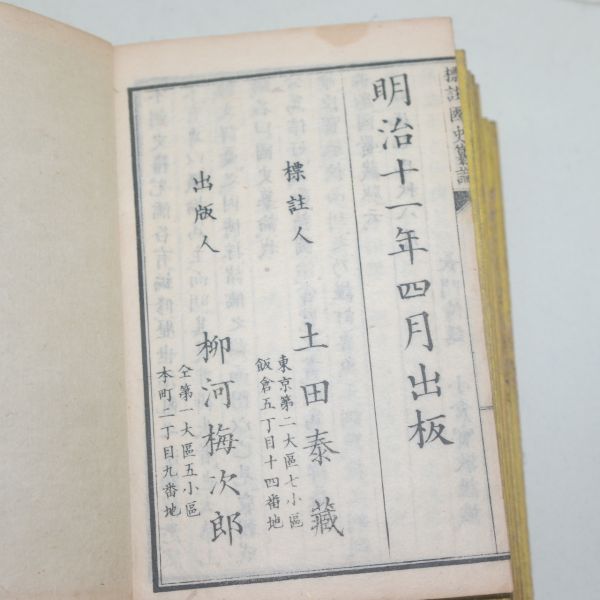 標註國史纂論
明治十一年四月出板
標註人
東京第二大區七小區
飯倉五丁目十四番地
土田泰藏
出版人
仝第一大區五小區
本町二丁目九番地
柳河梅次郎